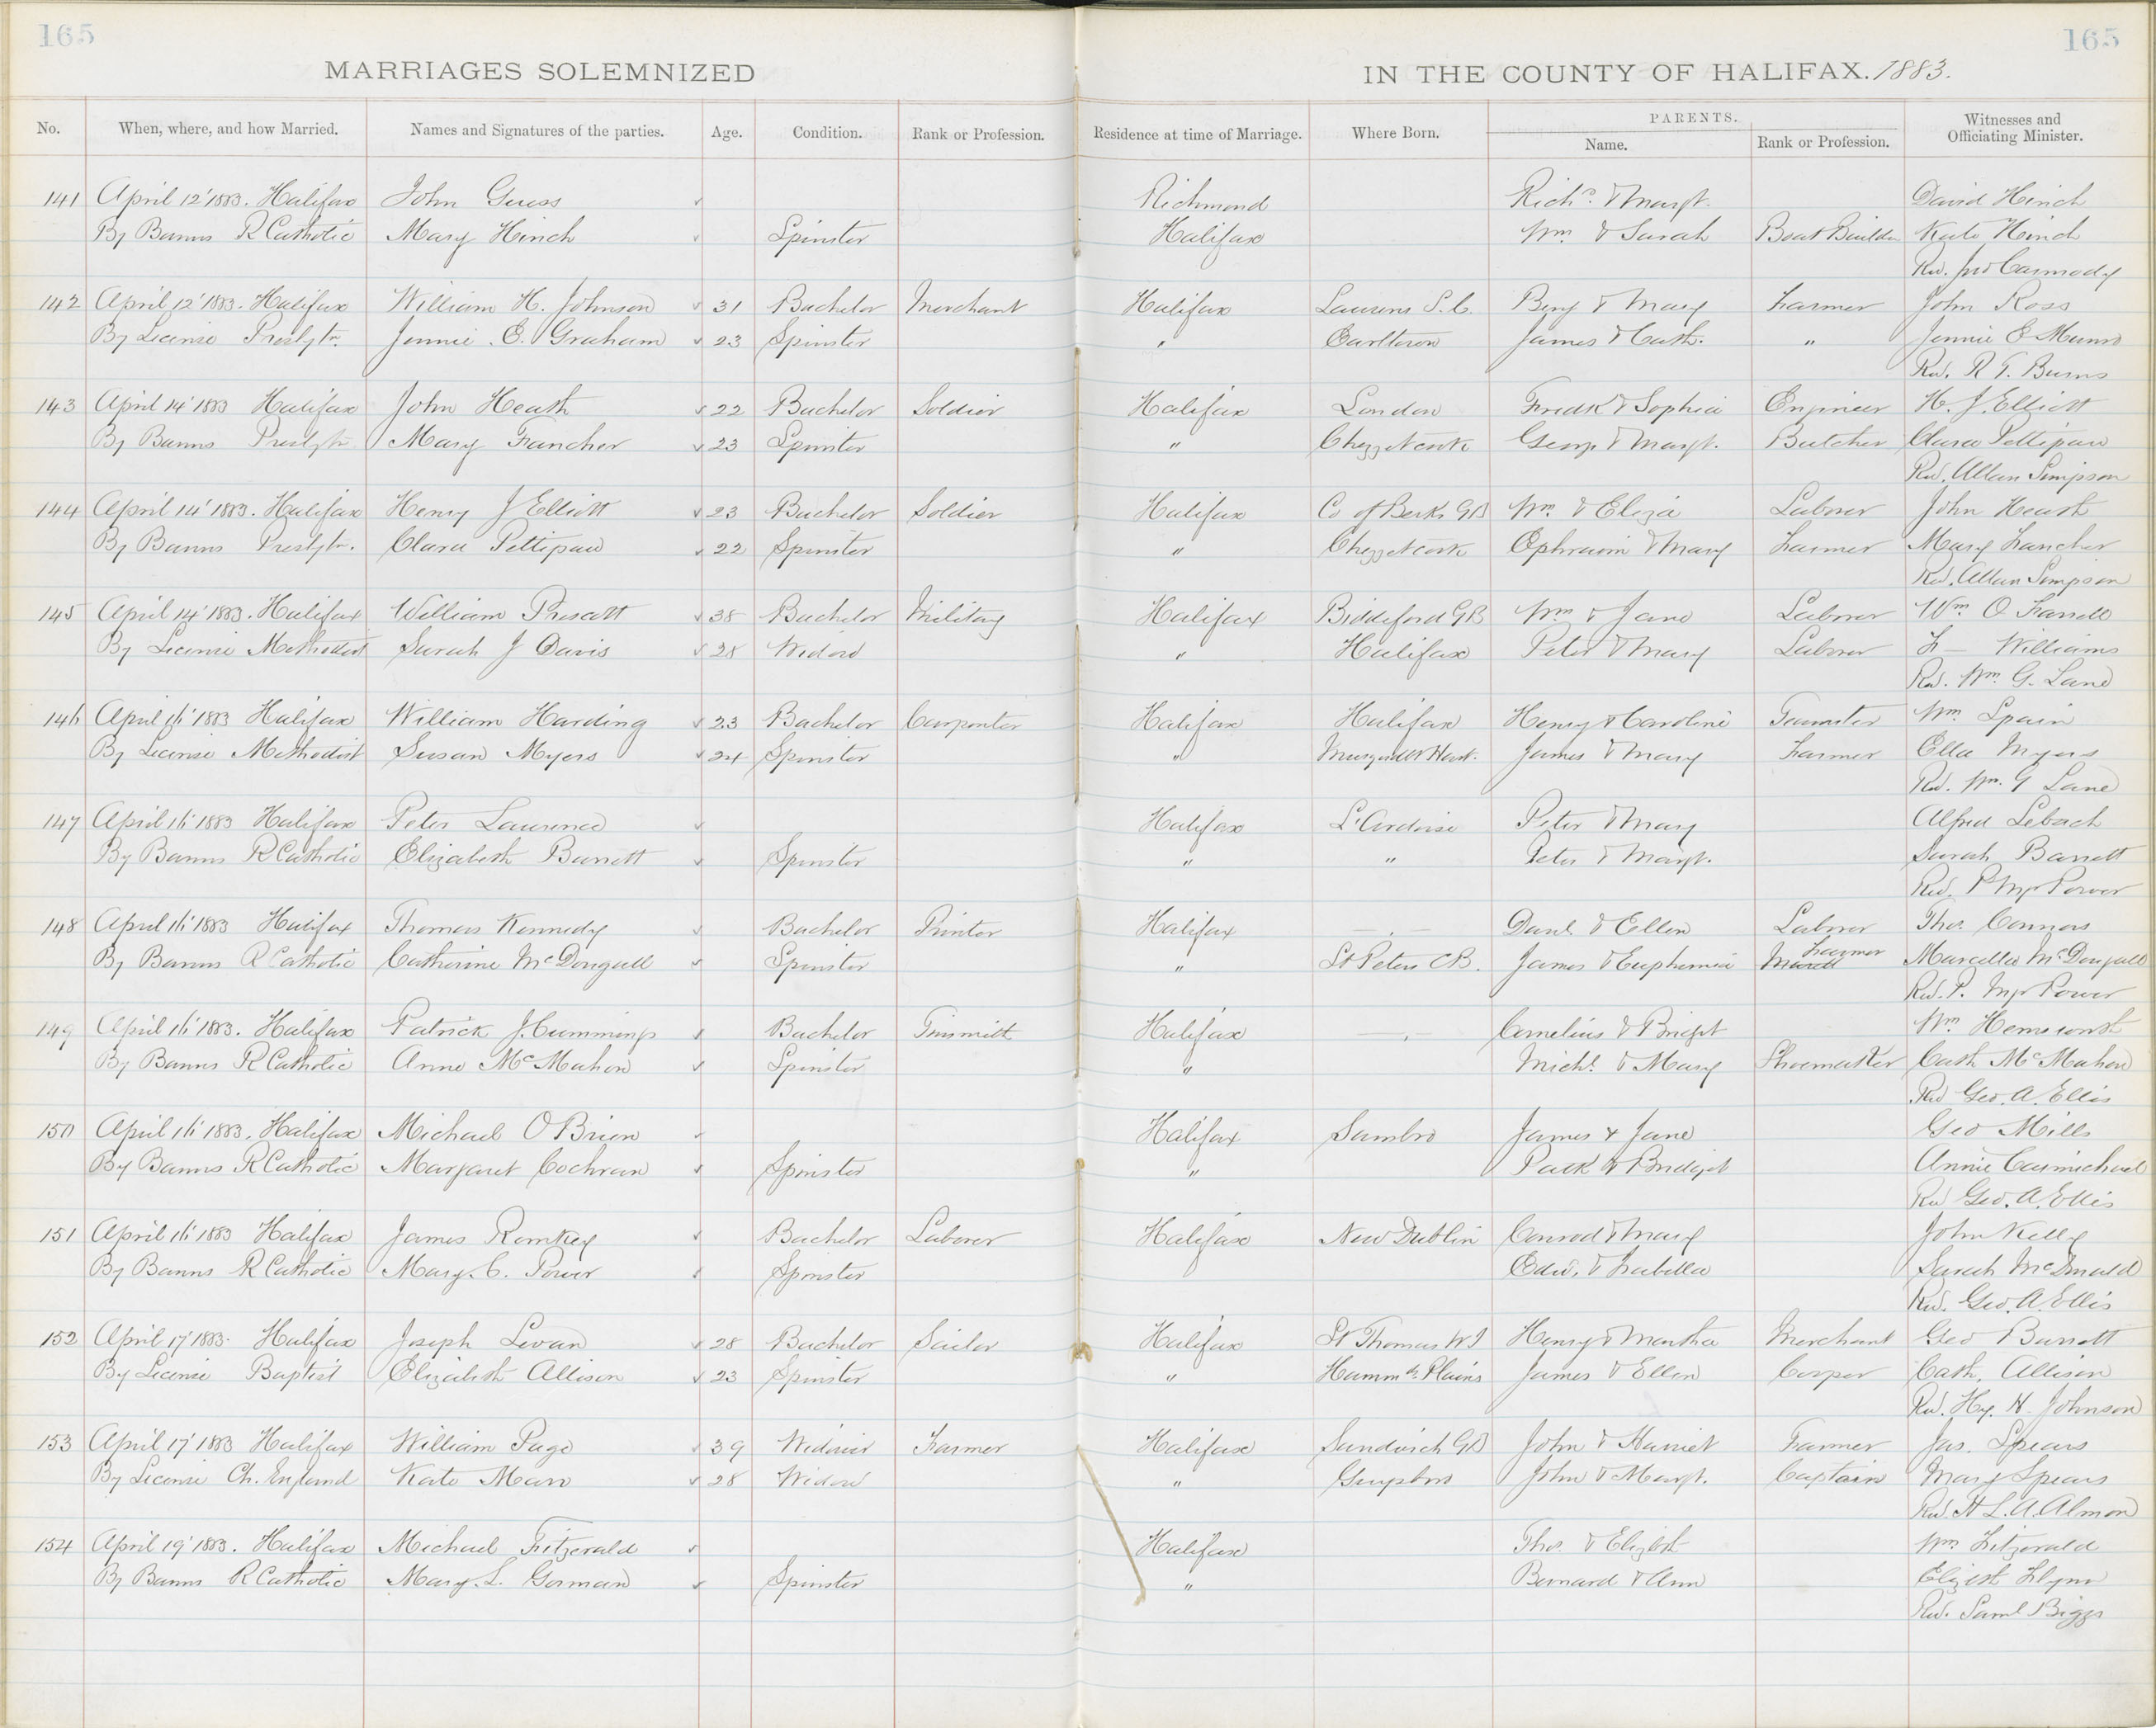 165 165
MARRIAGES SOLEMNIZED IN THE COUNTY OF HALIFAX. 1883.
No. When, where, and how Married. Names and Signatures of the parties. Age. Condition. Rank or Profession. Residence at time of Marriage. Where Born. PARENTS. Name. Rank or Profession. Witnesses and Officiating Minister.
141 April 12' 1883. Halifax John Guess Richmond Richd. & Margt. David Hinch
By Banns R Catholic Mary Hinch Spinster Halifax Wm. & Sarah Boat Builder Kate Hinch
Rev. Jno Carmody
142 April 12' 1883. Halifax William H. Johnson 31 Bachelor Merchant Halifax Laurens S.C. Benj & Mary Farmer John Ross
By License Presbytn. Jennie E. Graham 23 Spinster " Earltown James & Cath. " Jennie E Munro
Rev. R F. Burns
143 April 14' 1883 Halifax John Heath 22 Bachelor Soldier Halifax London Fredk & Sophia Engineer H. J. Elliott
By Banns Presbytn Mary Fancher 23 Spinster " Chezzetcook George & Margt. Butcher Clara Pettipaw
Rev. Allan Simpson
144 April 14' 1883. Halifax Henry J Elliott 23 Bachelor Soldier Halifax Co of Berks GB Wm. & Eliza Laborer John Heath
By Banns Presbytn. Clara Pettipaw 22 Spinster " Chezzetcook Ephraim & Mary Farmer Mary Fancher
Rev. Allan Simpson
145 April 14' 1883. Halifax William Prescott 38 Bachelor Military Halifax Biddeford GB Wm & Jane Laborer Wm. O. Farrell
By License Methodist Sarah J Davis 28 Widow " Halifax Peter & Mary Laborer F— Williams
Rev. Wm. G. Lane
146 April 16' 1883 Halifax William Harding 23 Bachelor Carpenter Halifax Halifax Henry & Caroline Teamster Wm. Spain
By License Methodist Susan Myers 24 Spinster " James & Mary Farmer Ella Myers
Rev. Wm. G Lane
147 April 16' 1883 Halifax Peter Laurence Halifax L'Ardoise Peter & Mary Alfred Lebach
By Banns R Catholic Elizabeth Barrett Spinster " " Peter & Margt. Sarah Barrett
Rev. P Mgr Power
148 April 16' 1883 Halifax Thomas Kennedy Bachelor Printer Halifax Danl. & Ellen Laborer Thos. Connors
By Banns R Catholic Catherine McDougall Spinster " St Peters CB. James & Euphemia Farmer Marcella McDougall
Rev. P. Mgr Power
149 April 16' 1883. Halifax Patrick J. Cummings Bachelor Tinsmith Halifax Cornelius & Bridgt Wm Hemsworth
By Banns R Catholic Anne McMahon Spinster " Michl. & Mary Shoemaker Cath McMahon
Rev Geo. A. Ellis
150 April 16' 1883. Halifax Michael O Brien Halifax Sambro James & Jane Geo Mills
By Banns R Catholic Margaret Cochran Spinster " Patk & Bridget Annie Carmichael
Rev Geo. A. Ellis
151 April 16' 1883 Halifax James Romkey Bachelor Laborer Halifax New Dublin Conrod & Mary John Kelly
By Banns R Catholic Mary. C. Power Spinster Edw. & Isabella Sarah McDonald
Rev. Geo. A. Ellis
152 April 17' 1883. Halifax Joseph Levan 28 Bachelor Sailor Halifax St Thomas W I Henry & Martha Merchant Geo Barrett
By License Baptist Elizabeth Allison 23 Spinster " Hammds. Plains James & Ellen Cooper Cath. Allison
Rev. Hy. H. Johnson
153 April 17' 1883 Halifax William Page 39 Widower Farmer Halifax Sandwich GB John & Harriet Farmer Jas. Spears
By License Ch. England Kate Mann 28 Widow " Guysboro John & Margt. Captain Mary Spears
Rev. H L. A. Almon
154 April 19' 1883. Halifax Michael Fitzgerald Halifax Thos. & Elizbth Wm. Fitzgerald
By Banns R Catholic Mary. L. Gorman Spinster " Bernard & Ann Elizbth Flynn
Rev. Saml Biggs